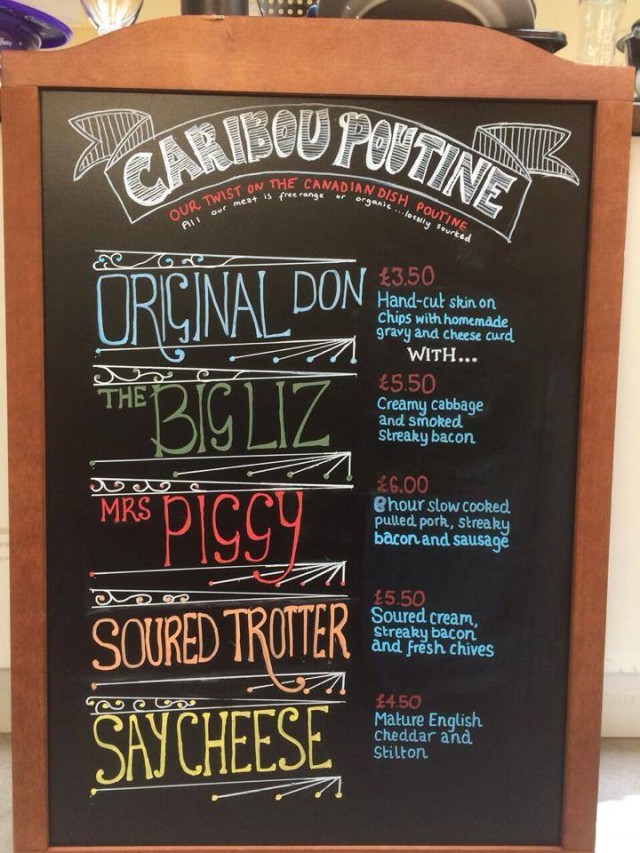 CARIBOU POUTINE
OUR TWIST ON THE CANADIAN DISH POUTINE
All our meat is free range or organic...locally sourced
ORIGINAL DON
£3.50
Hand-cut skin on
chips with homemade
gravy and cheese curd
WITH...
THE BIG LIZ
£5.50
Creamy cabbage
and smoked
Streaky bacon
MRS PIGGY
£6.00
8 hour slow cooked
pulled pork, streaky
bacon and sausage
SOURED TROTTER
£5.50
Soured cream,
streaky bacon
and fresh chives
SAY CHEESE
£4.50
Mature English
cheddar and
Stilton